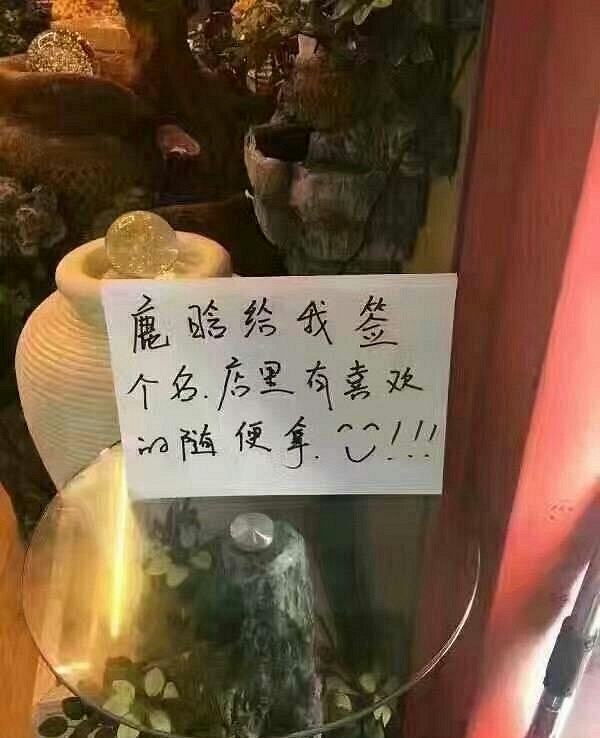 鹿晗给我签
个名.店里有喜欢
的随便拿.!!!